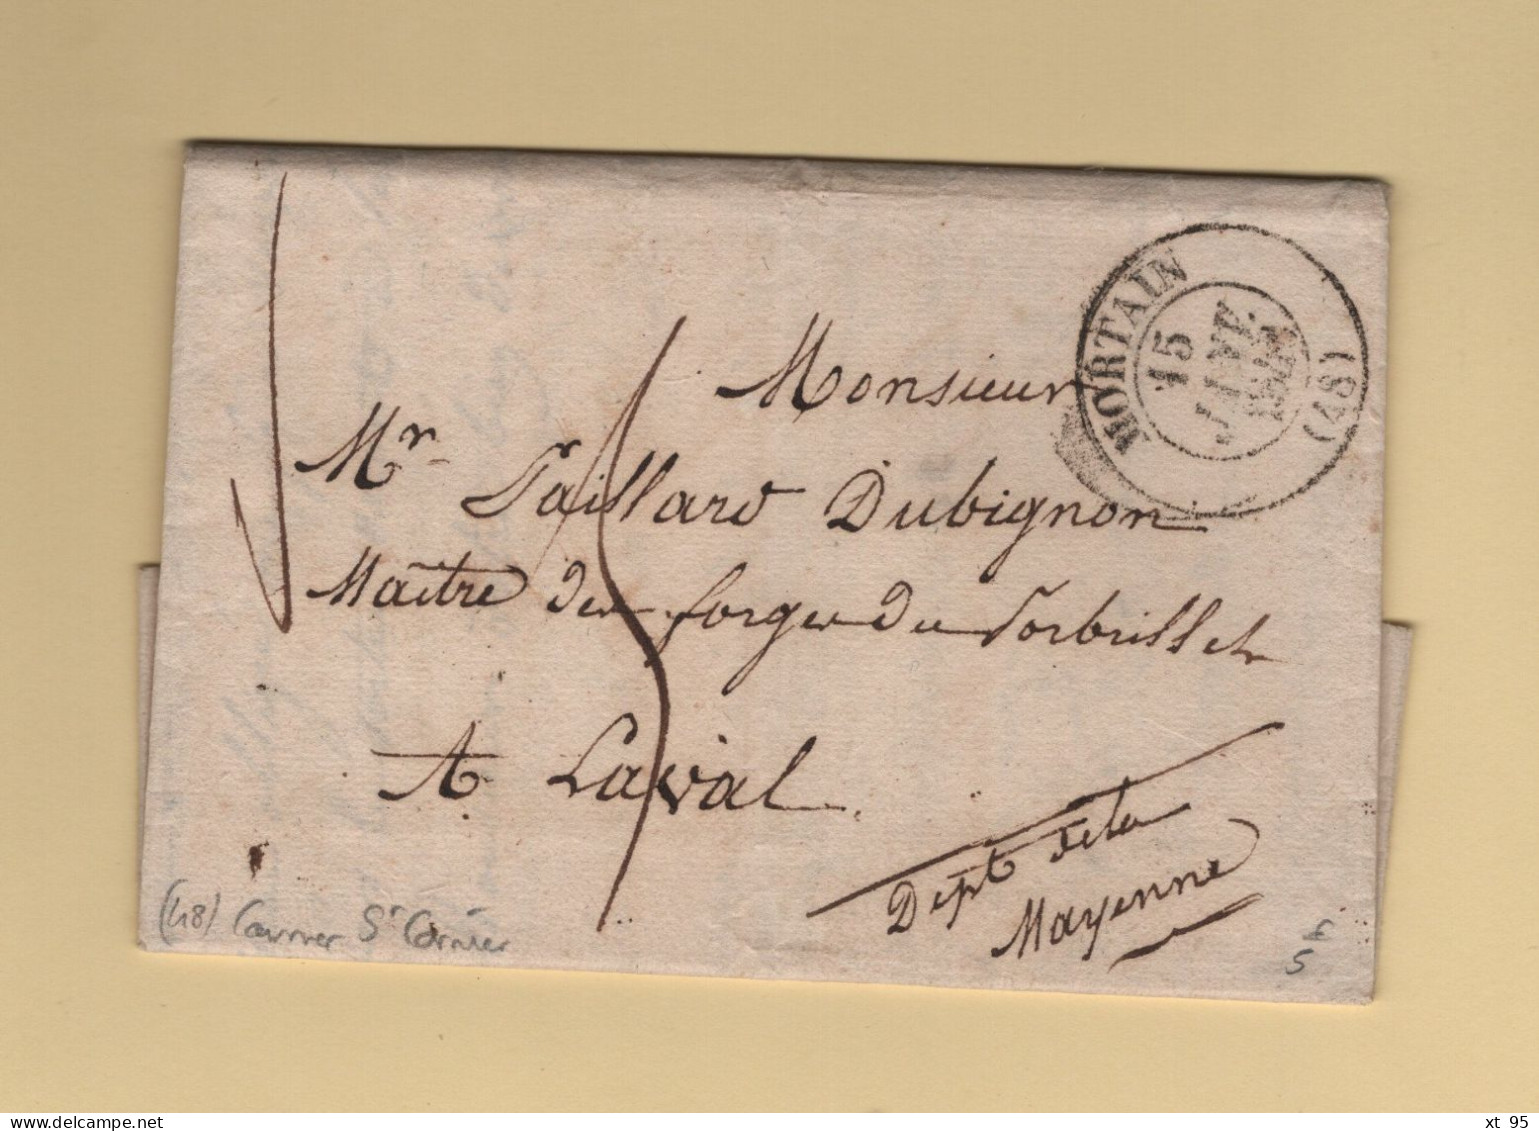 MORTAIN
15
JANV.
(48)
Monsieur
Mr Taillard Dubignon
Maître des forges du Porbrillet
A Laval
Dept de la
Mayenne
(48) Courrier St Cornier
5 f
xt 95
www.delcampe.net